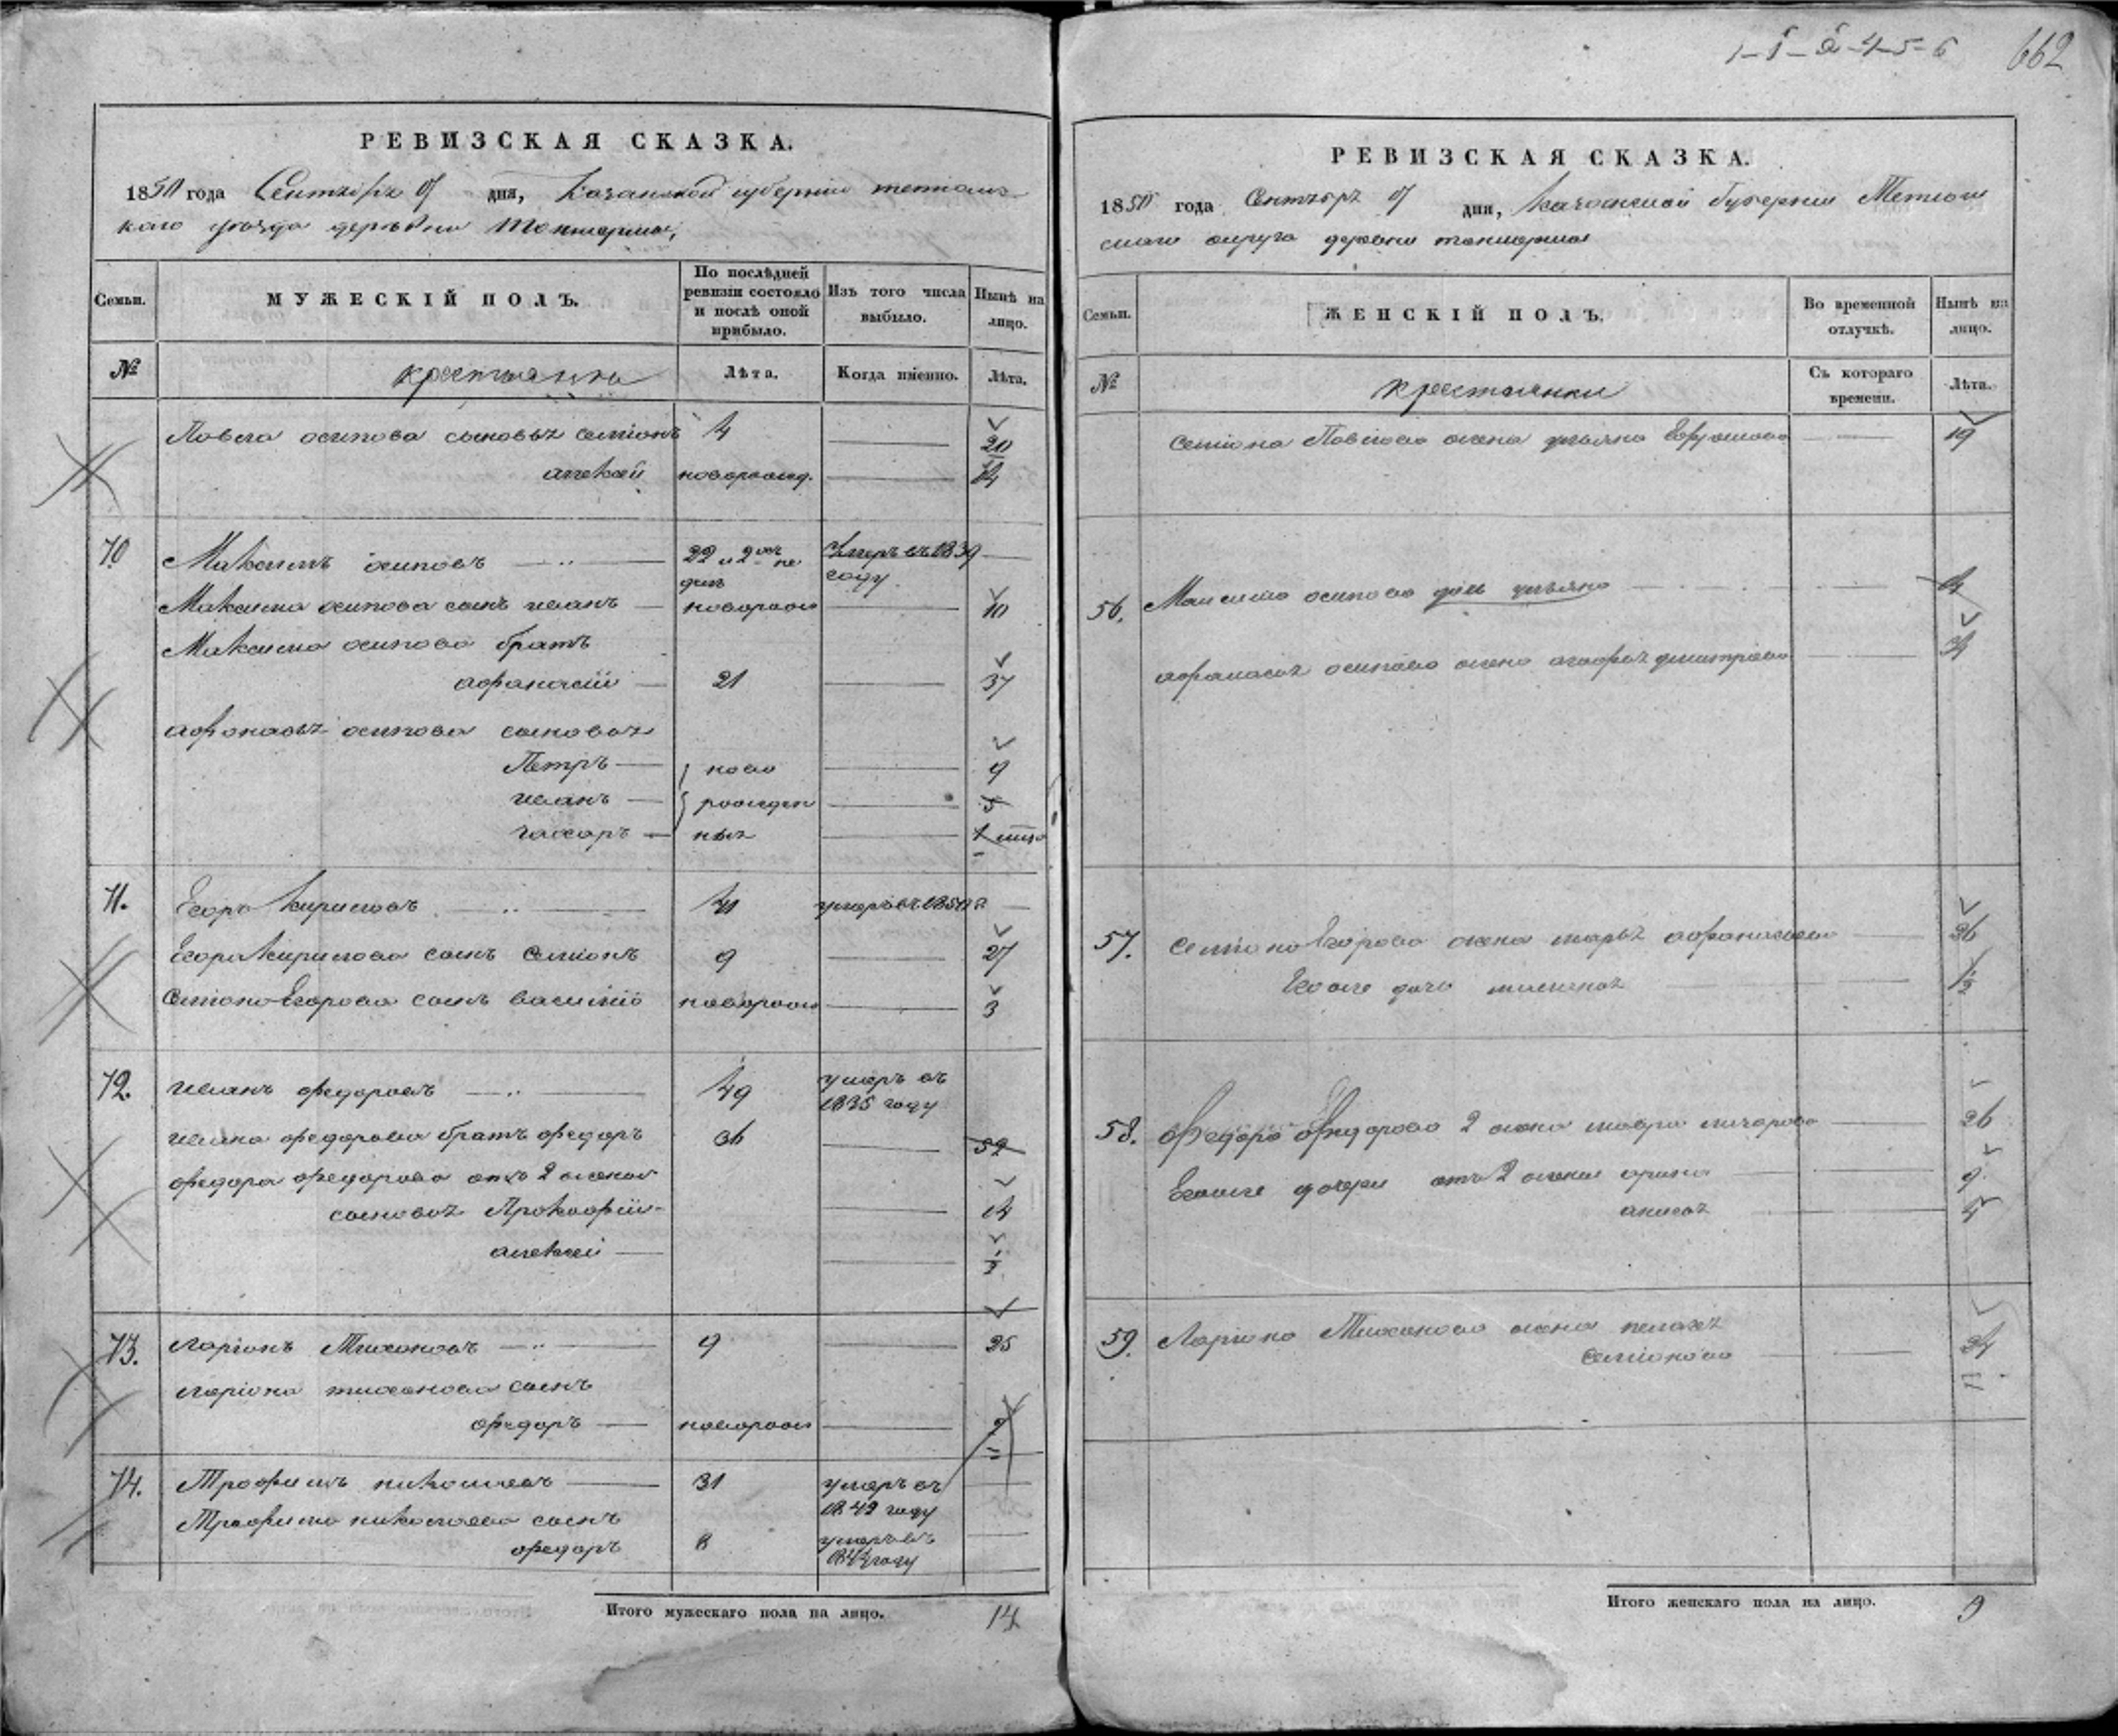 РЕВИЗСКАЯ СКАЗКА.
1850 года Сентября дня, Казанской губернии тетюшс
каго уѣзда деревни
Семьи. МУЖЕСКІЙ ПОЛЪ. По послѣдней ревизіи состояло и послѣ оной прибыло. Изъ того числа выбыло. Нынѣ на лицо.
№ крестьяня Лѣта. Когда именно. Лѣта.
Павела осипова сыновья семіонъ 4 20
алексей новорожд. 14
70 Максимъ осиповъ 22 умеръ въ 1839 году
Максима осипова сынъ иванъ новорож 10
Максима осипова братъ
афанасій 21 37
афонасья осипова сыновья
Петръ ново 9
иванъ рожден 5
ныя
71. Егоръ Кириловъ 41 умеръ въ 1850 г
Егора Кирилова сынъ Семіонъ 9 27
Семіона Егорова сынъ василій новорож 3
72. иванъ федоровъ 49 умеръ въ 1835 году
ивана федорова братъ федоръ 36 52
федора федорова отъ 2 жены
сыновья Прокофій 14
алексей
73. Ларіонъ Тихоновъ 9 25
ларіона тихонова сынъ
федоръ новорож 2
74. Трофимъ николаевъ 31 умеръ въ 1842 году
Трофима николаева сынъ
федоръ 8 умеръ въ 1844 году
Итого мужескаго пола на лицо. 14
1-Т- -4-5-6 662
РЕВИЗСКАЯ СКАЗКА.
1850 года Сентября дня, Казанской Губернии Тетюш
скаго округа деревни
Семьи. ЖЕНСКІЙ ПОЛЪ. Во временной отлучкѣ. Нынѣ на лицо.
№ крестьянки Съ котораго времени. Лѣта.
семіона Павлова жена ульяна 19
56. Максима осипова дочь ульяна
афанасья осипова жена агафья дмитріева 34
57. семіона Егорова жена марья афанасьева 26
Ево же дочь
58. Федора Федорова 2 жена мавра 26
Его же дочери отъ 2 жены орина 9
анисья
59. Ларіона Тихонова жена пелагея
семіонова 24
Итого женскаго пола на лицо. 9